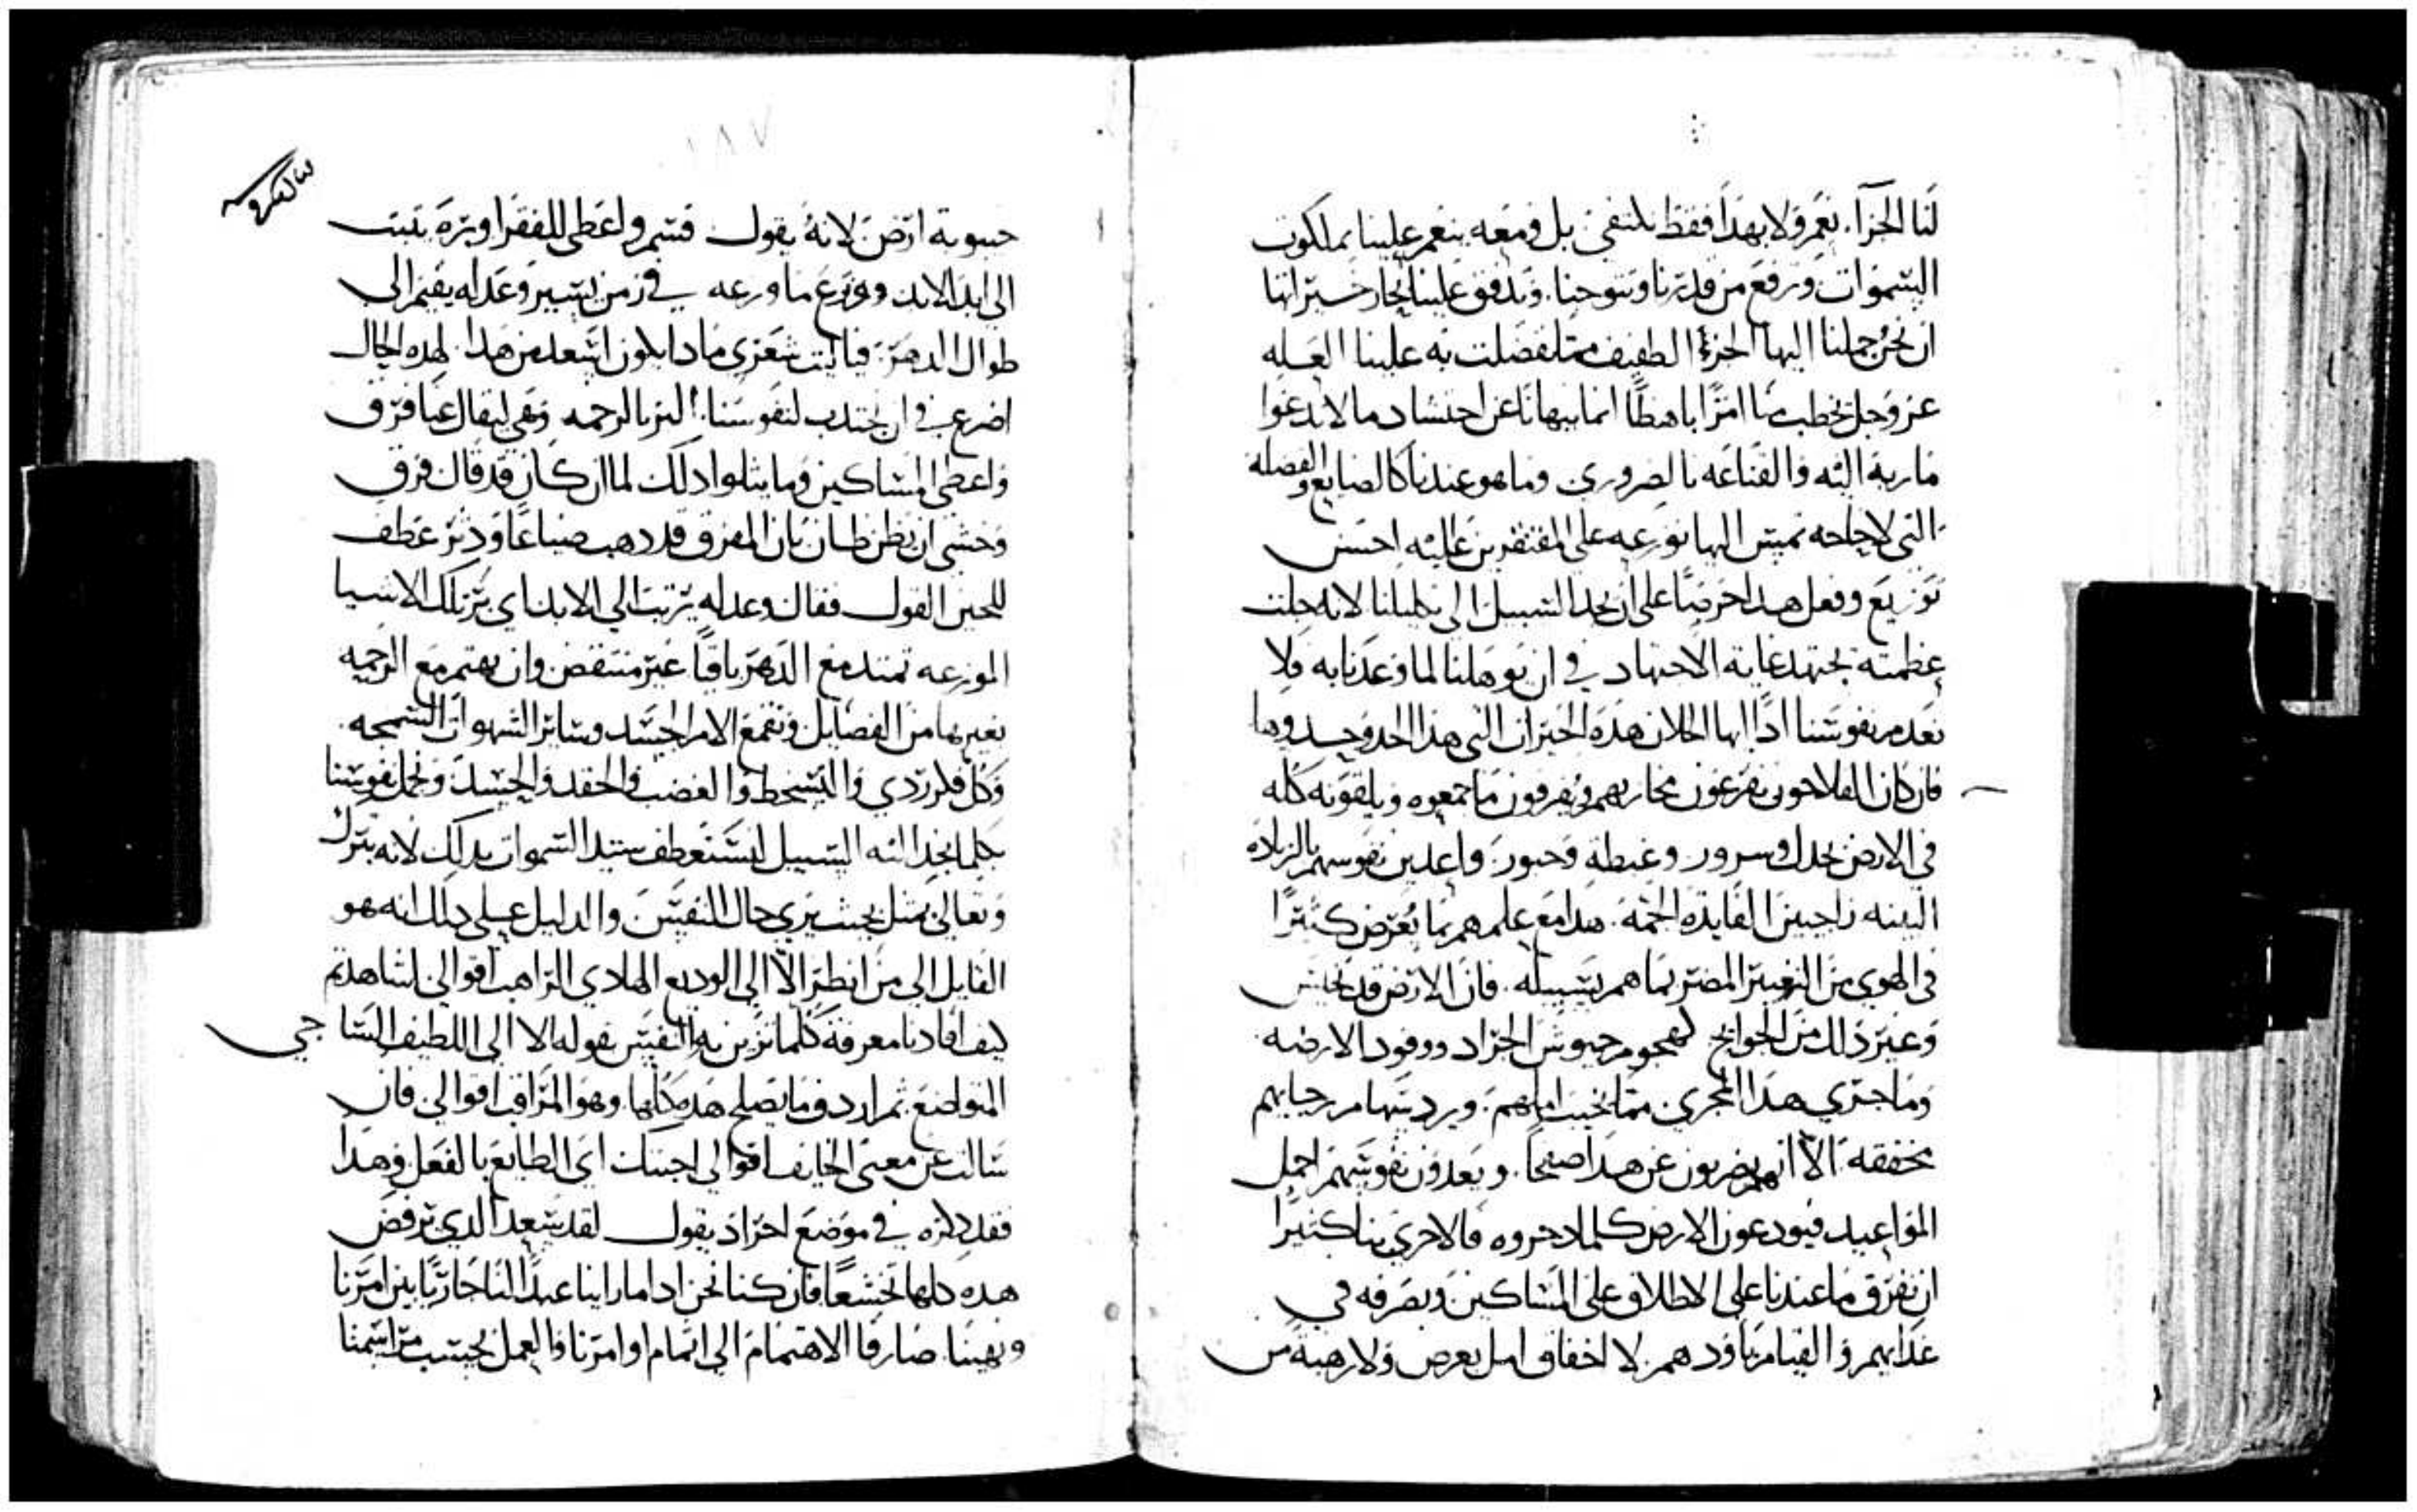 لنا الجزآ. نعم ولا بهذا فقط يكتفي بل ومعه ينعم علينا بملكوت
السموات ويرفع من قدرنا ويتوجنا. ويدفق علينا بحار خيراتها
ان نحن حملنا اليها الجزء الطفيف مما تفضلت به علينا العله
عز وجل يخطب منا امرًا باهظًا انما ينهانا عن احتشاد ما لا تدعوا
ماربة اليه والقناعه بالضروري وما هو عندنا كالضايع والفضله
التي لا حاجه تمس اليها نوزعه على المفتقرين عليه احسن
توزيع وفعل هذا حرصًا على ان يجد السبيل الى تكليلنا لانه جلت
عظمته يجتهد غاية الاجتهاد في ان يوهلنا لما وعدنا به فلا
نعدم نفوسنا اذًا ايها الخلان هذه الخيرات التي هذا الحد وحدوها
فان كان الفلاحون يفرغون مخازنهم ويفرقون ما جمعوه ويلقونه كله
في الارض بجدل وسرور وغبطة وحبور. واعدين نفوسهم بالزياده
البينه راجين الفايده الجمه. هدا مع علمهم بما يعرض كثيرًا
في الهوي من التغيير المضر بما هم بسبيله. فان الارض قد تخيس
وغير ذلك من الجوايح لهجوم جيوش الجراد ووفود الارضه
وما جري هذا المجري مما يخيب املهم. ويرد سهام رجايهم
مخفقه الا انهم يضربون عن هدا صفحًا. ويعدون نفوسهم اجمل
المواعيد فيودعون الارض كلما ادخروه فالاحري بنا كثيرًا
ان نفرق ما عندنا على الاطلاق على المساكين ونصرفه في
غدايهم والقيام باودهم. لا اخفاق امل يعرض ولا رهبة من
١٨٧
جيبوبة ارض لانه يقول قسم واعطى للفقرا وبره يثبت
الى ابد الابد ووزع ما وزعه في زمن يسير وعدله يقيم الى
طوال الدهر. فيا ليت شعري مادا يكون اسعد من هدا لهده الحال
اضرع في ان نجتدب لنفوسنا البر بالرحمه وهي ليقال عنا فرق
واعطى المساكين وما يتلوا دلك لما ان كان قد قال فرق
وخشي ان يظن ظان بان المفرق قد دهب ضياعًا ودثر عطف
للحين القول فقال وعدله يترتب الي الابد اي بر تلك الاشيا
الموزعه تمتد مع الدهر باقيًا غير منتقض وان نهتم مع الرحمه
بغيرها من الفضايل ونقمع الام الجسد وساير الشهوات السمجه
وكل فكر ردي والتسخط والغضب والحقد والحسد. ونجمل نفوسنا
بكلما يجد اليه السبيل لنستعطف سيد السموات بدلك لانه بترك
وتعالى يمثل بحيث يري جمال النفس. والدليل على دلك انه هو
القايل الى من انظر الا الى الوديع الهادي الراهب اقوالي لشاهدتم
كيف افادنا معرفة كلما تزين به النفس بقوله الا الى اللطيف الساجي
المتواضع ثم اردف ما يصلح هده كلها. وهو المراقب اقوالي فان
سالت عن معنى الخايف اقوالي اجبتك اي الطايع بالفعل وهدا
فقد دكره في موضع اخر اد يقول لقد سعد الدي يرفض
هده كلها تخشعًا فان كنا نحن ادا ما راينا عبدًا لنا جاريًا بين امرنا
ونهينا. صارفًا الاهتمام الى اتمام اوامرنا والعمل بحسب مراسمنا